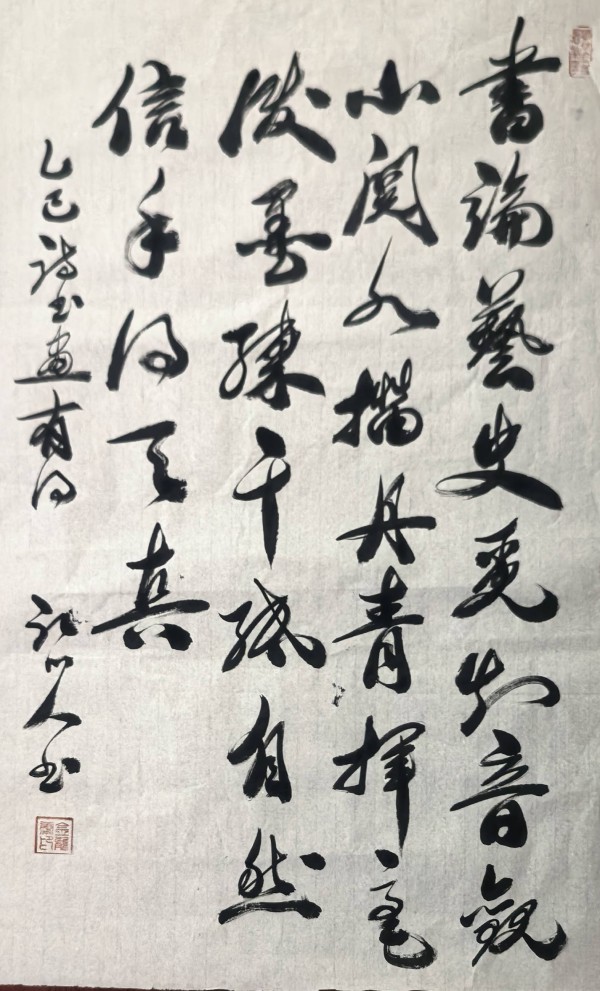 書論藝史覓知音觀
山閱水描丹青揮毫
潑墨練千紙自然
信手得天真
乙巳詩书畫有得
山人书